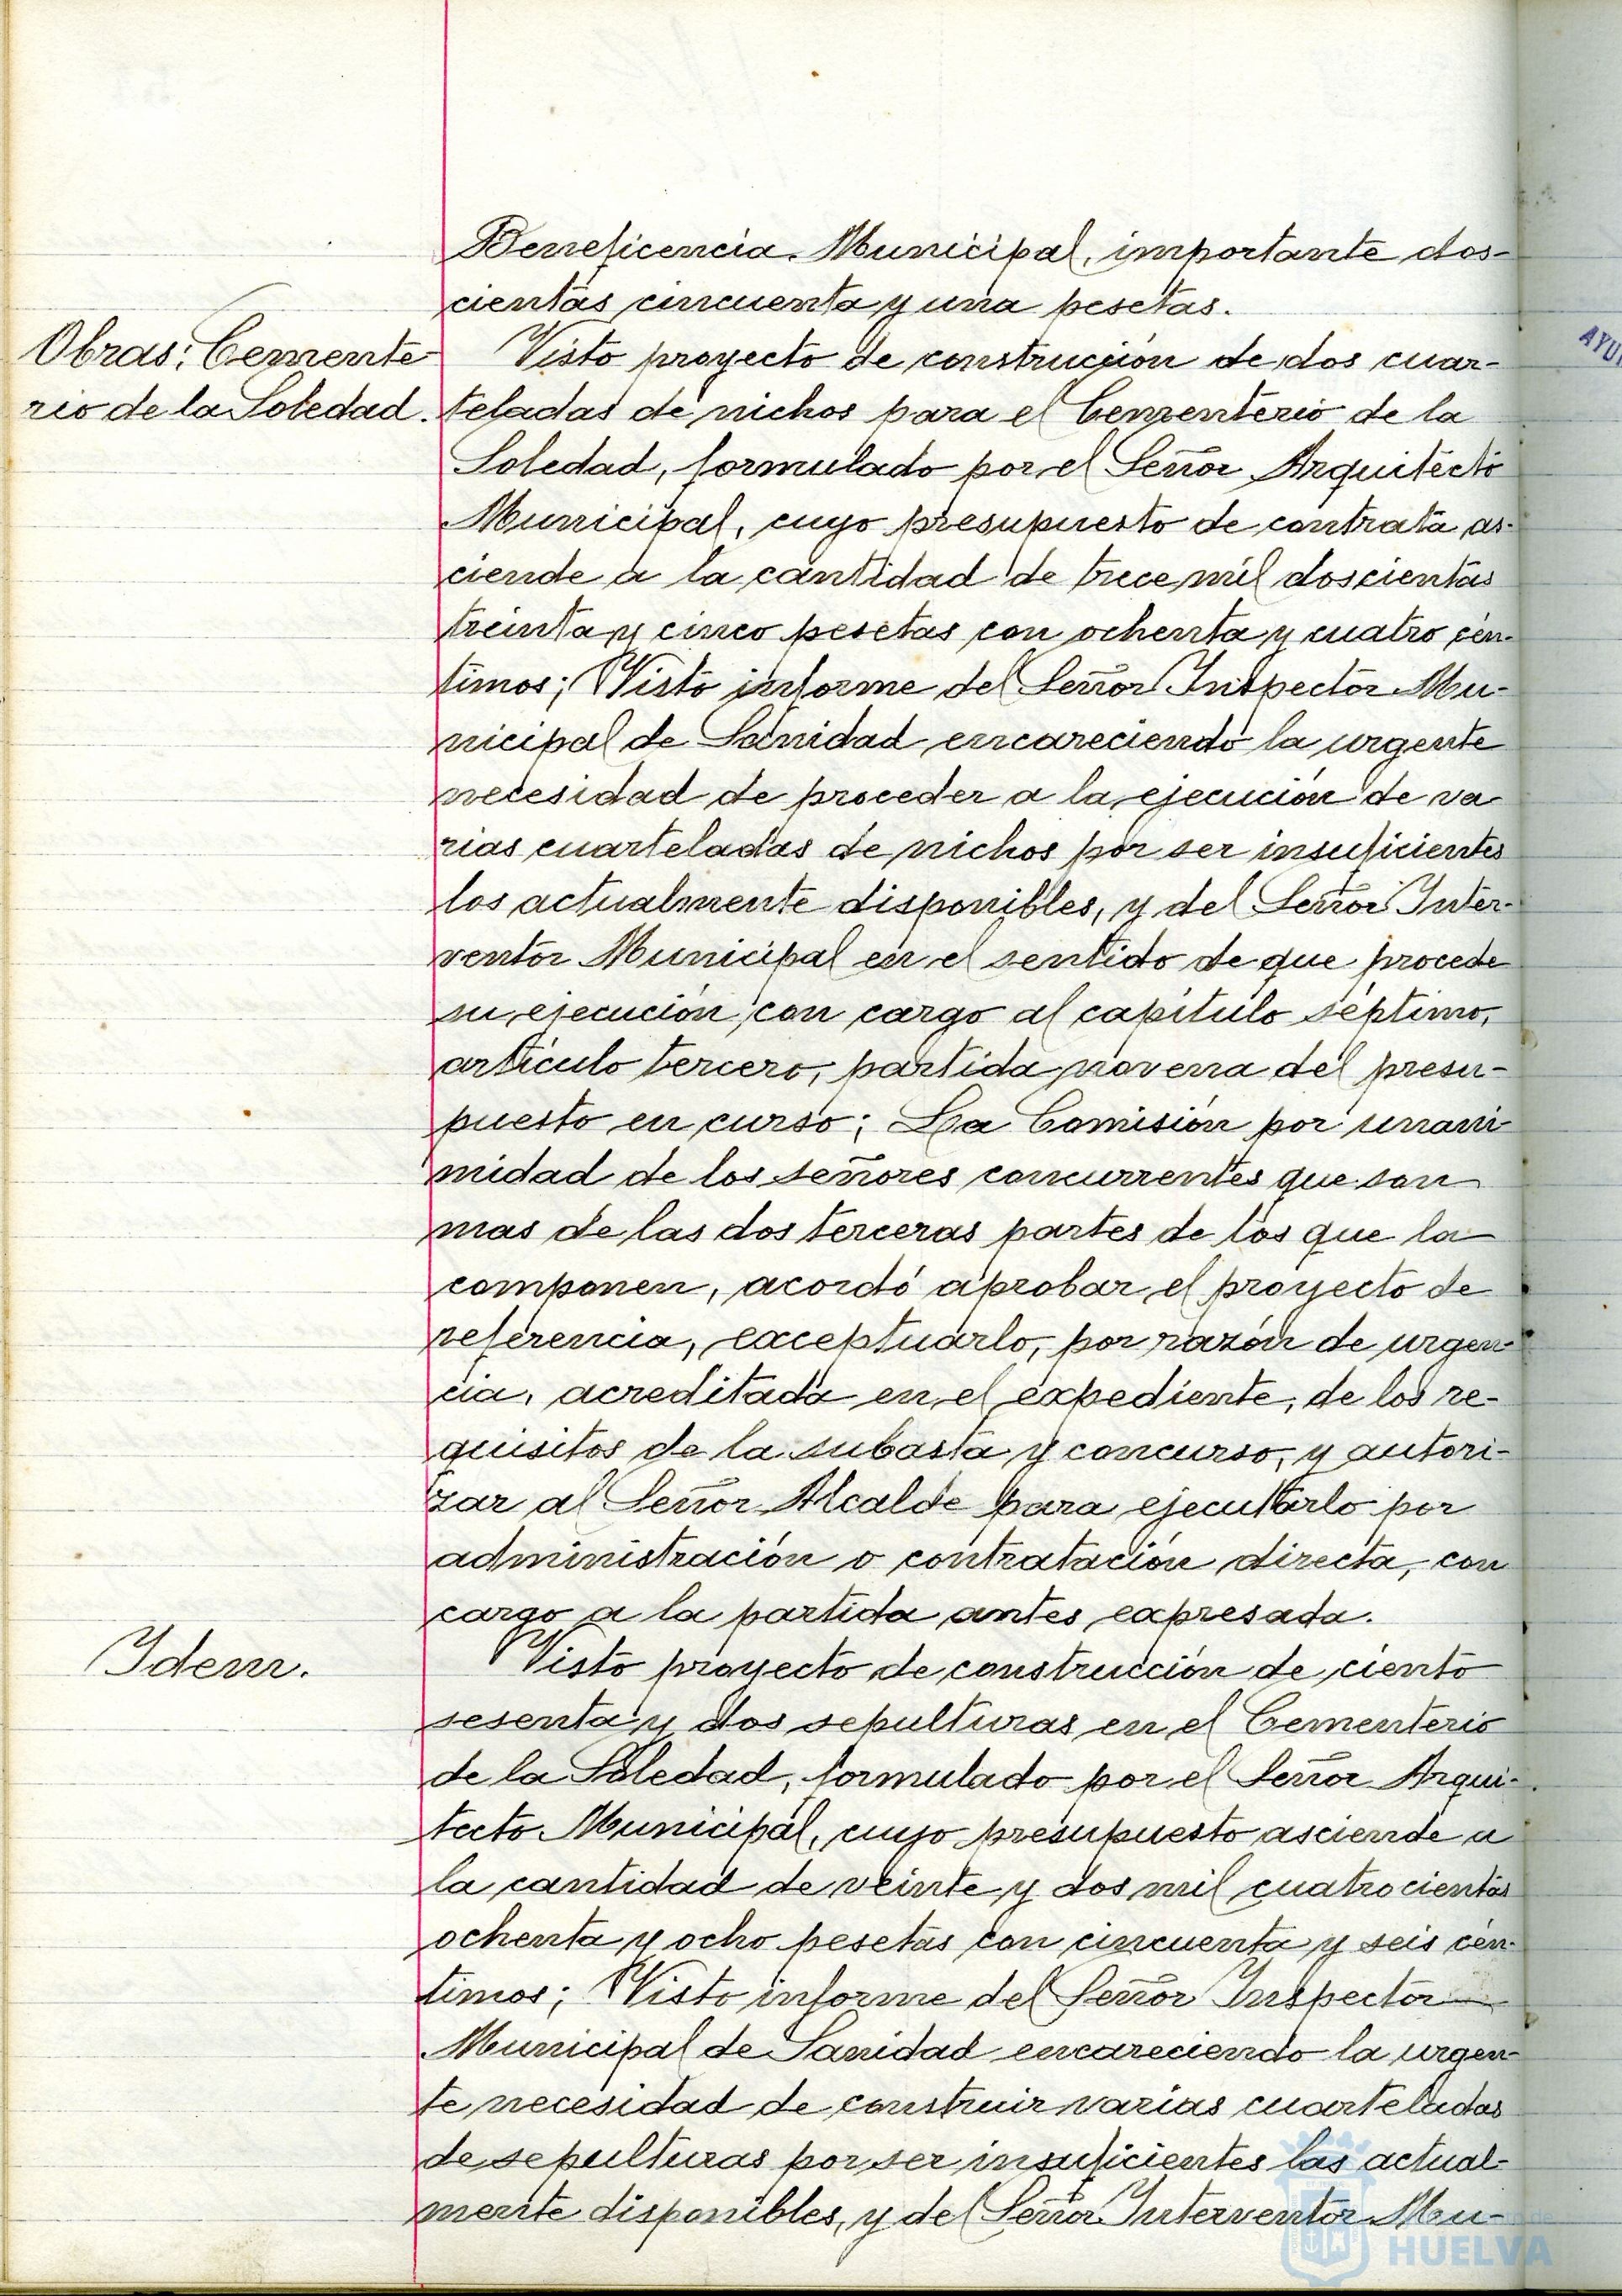 Beneficencia Municipal, importante dos-
cientas cincuenta y una pesetas.
Obras: Cemente
rio de la Soledad.
Visto proyecto de construcción de dos cuar-
teladas de nichos para el Cementerio de la
Soledad, formulado por el Señor Arquitecto
Municipal, cuyo presupuesto de contrata as-
ciende a la cantidad de trece mil doscientas
treinta y cinco pesetas con ochenta y cuatro cén-
timos; Visto informe del Señor Inspector Mu-
nicipal de Sanidad encareciendo la urgente
necesidad de proceder a la ejecución de va
rias cuarteladas de nichos por ser insuficientes
los actualmente disponibles, y del Señor Inter-
ventor Municipal en el sentido de que procede
su ejecución con cargo al capítulo séptimo,
artículo tercero, partida novena del presu-
puesto en curso; La Comisión por unani
midad de los señores concurrentes que son
mas de las dos terceras partes de los que la
componen, acordó aprobar el proyecto de
referencia, exceptuarlo, por razón de urgen
cia, acreditada en el expediente, de los re-
quisitos de la subasta y concurso, y autori-
zar al Señor Alcalde para ejecutarlo por
administración o contratación directa, con
cargo a la partida antes expresada.
Idem.
Visto proyecto de construcción de ciento
sesenta y dos sepulturas en el Cementerio
de la Soledad, formulado por el Señor Arqui-
tecto Municipal, cuyo presupuesto asciende a
la cantidad de veinte y dos mil cuatrocientas
ochenta y ocho pesetas con cincuenta y seis cén-
timos; Visto informe del Señor Inspector
Municipal de Sanidad encareciendo la urgen
te necesidad de construir varias cuarteladas
de sepulturas por ser insuficientes las actual-
mente disponibles, y del Señor Interventor Mu-
AYU
HUELVA